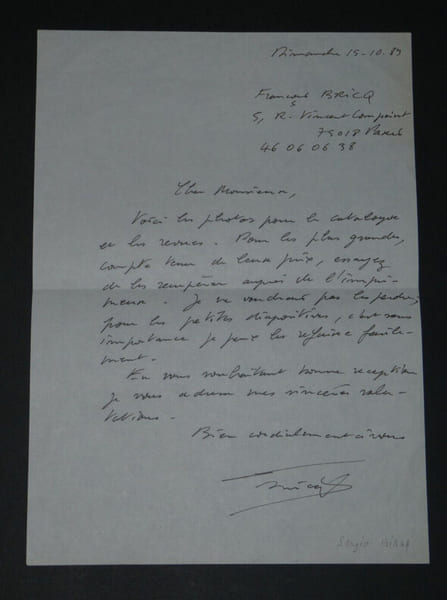 Dimanche 15-10.89
François BRICQ
5, R. Vincent Compoint
75018 Paris
46 06 06 38
Cher Monsieur,
Voici les photos pour le catalogue
et les revues. Pour les plus grandes,
compte tenu de leur prix, essayez
de les récupérer auprès de l'impri-
meur. Je ne voudrais pas les perdre;
pour les petites diapositives, c'est sans
importance je peux les refaire facile-
ment.
En vous souhaitant bonne réception
je vous adresse mes sincères salu-
tations.
Bien cordialement à vous
Sergio